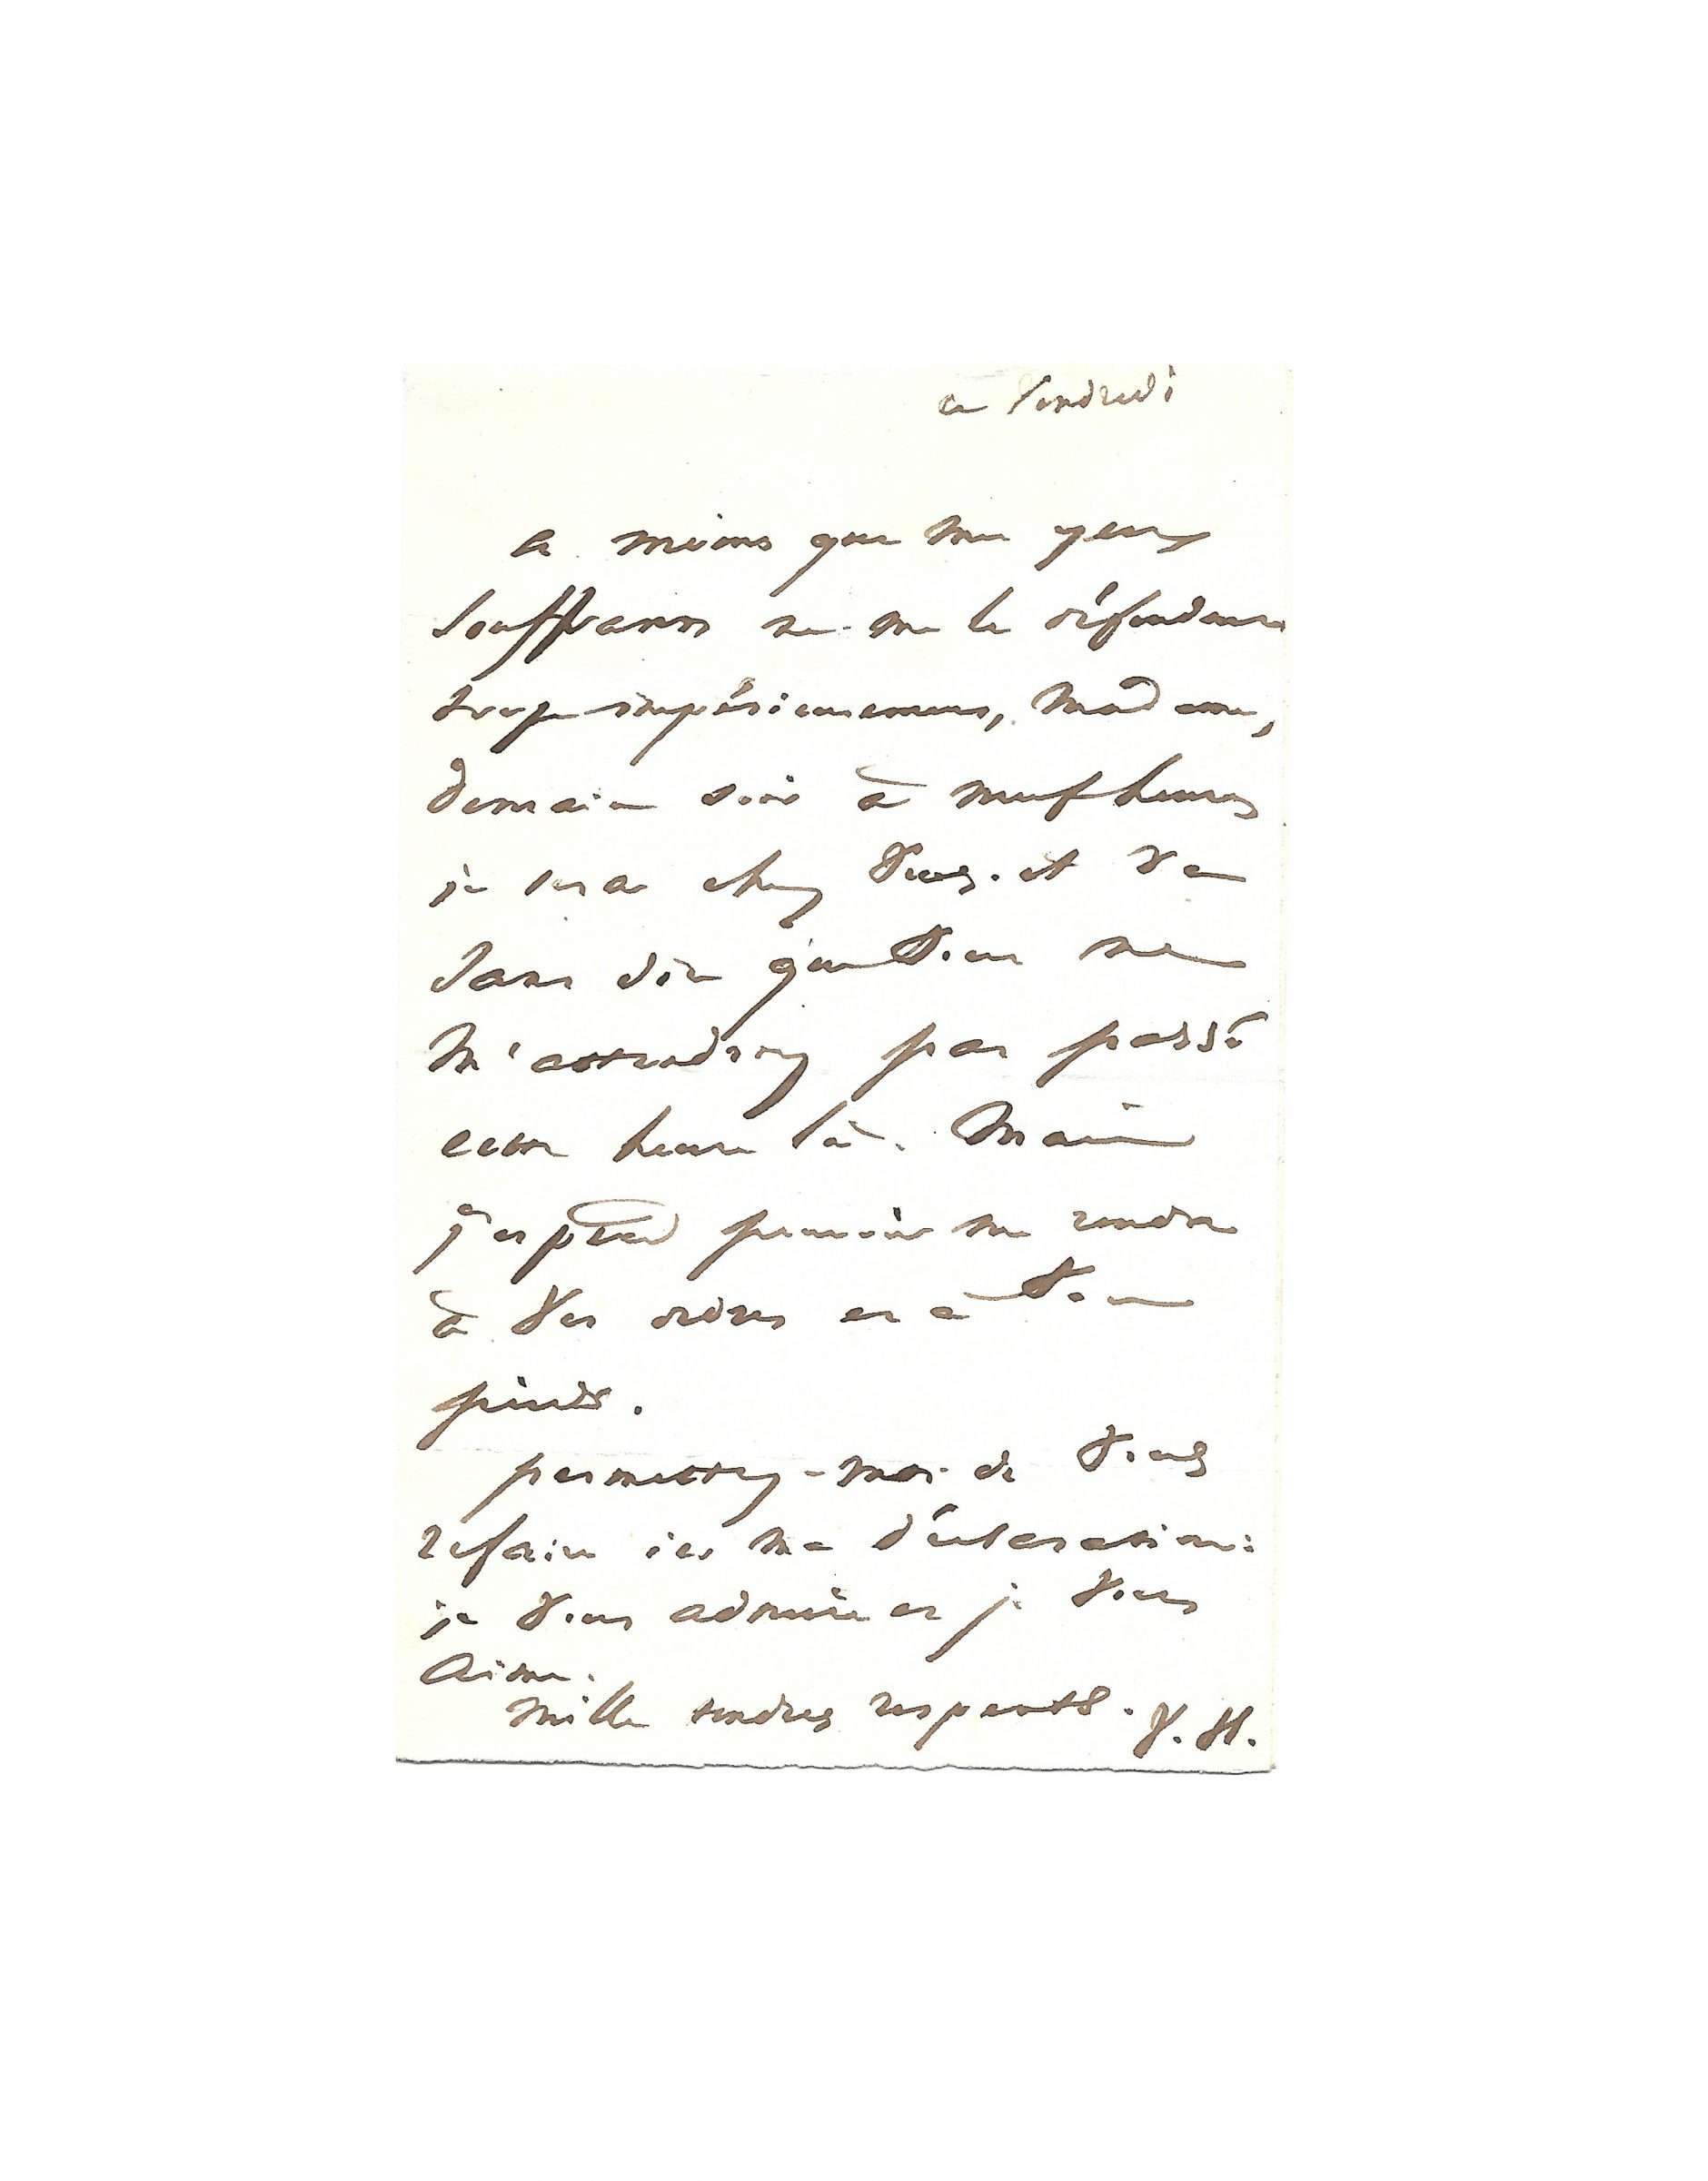 ce Vendredi
à moins que mes yeux
souffrants ne me le défendent
trop impérieusement, Madame,
demain soir à neuf heures
je serai chez vous. il va
sans dire que vous ne
m'attendrez pas passé
cette heure là. Mais
j'espère pouvoir me rendre
à vos ordres et à vos
pieds.
permettez-moi de vous
refaire ici ma déclaration :
je vous admire et je vous
aime.
mille tendres respects. V. H.